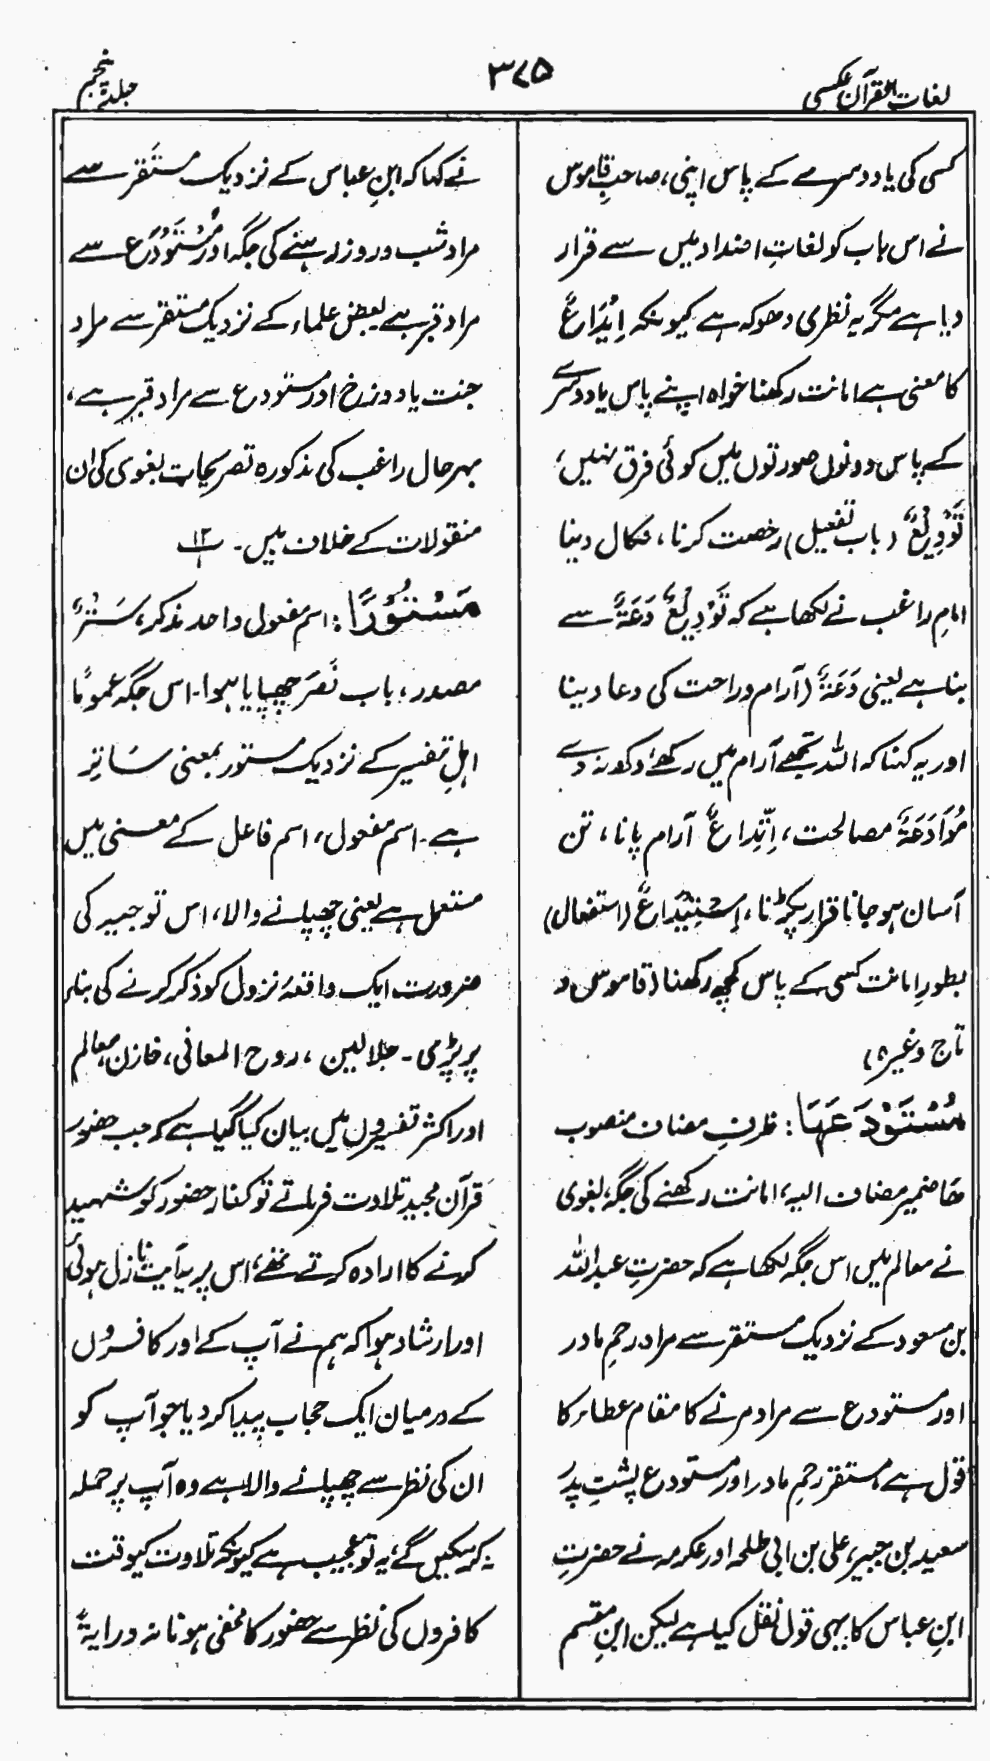 لغات القرآن عکسی
۳۷۵
جلد پنجم
کسی کی یا دوسرے کے پاس اپنی، صاحبِ قاموس
نے اس باب کو لغاتِ اضداد میں سے قرار
دیا ہے مگر یہ نظری دھوکہ ہے کیونکہ اِیْدَاعٌ
کا معنی ہے امانت رکھنا خواہ اپنے پاس یا دوسرے
کے پاس دونوں صورتوں میں کوئی فرق نہیں،
تَوْدِیْعٌ (باب تفعیل) رخصت کرنا، نکال دینا
امام راغب نے لکھا ہے کہ تَوْدِیْعٌ دَعَۃٌ سے
بنا ہے یعنی دَعَۃٌ (آرام و راحت کی دعا دینا
اور یہ کہنا کہ اللہ تجھے آرام میں رکھے، دکھ نہ دے
مُوَادَعَۃٌ مصالحت، اِتِّدَاعٌ آرام پانا، تن
آسان ہو جانا قرار پکڑنا، اِسْتِیْدَاعٌ (استفعال)
بطور امانت کسی کے پاس کچھ رکھنا (قاموس و
تاج وغیرہ)
مُسْتَوْدَعَهَا: ظرفِ مضاف منصوب
ھا ضمیر مضاف الیہ، امانت رکھنے کی جگہ، بغوی
نے معالم میں اس جگہ لکھا ہے کہ حضرتِ عبداللہ
بن مسعود کے نزدیک مستقر سے مراد رحمِ مادر
اور مستودع سے مراد مرنے کا مقام عطاء کا
قول ہے مستقر رحمِ مادر اور مستودع پشتِ پدر
سعید بن جبیر، علی بن ابی طلحہ اور عکرمہ نے حضرتِ
ابنِ عباس کا یہی قول نقل کیا ہے لیکن ابن مقسم
نے کہا کہ ابنِ عباس کے نزدیک مستَقر سے
مراد شب و روز رہنے کی جگہ اور مُسْتَوْدَع سے
مراد قبر ہے بعض علماء کے نزدیک مستقر سے مراد
جنت یا دوزخ اور مستودع سے مراد قبر ہے،
بہرحال راغب کی مذکورہ تصریحات بغوی کی ان
منقولات کے خلاف ہیں۔ ۱۲
مَسْتُوْرًا: اسم مفعول واحد مذکر، سَتْرٌ
مصدر، باب نَصَرَ چھپایا ہوا۔ اس جگہ عمومًا
اہلِ تفسیر کے نزدیک مستور بمعنی سَاتِر
ہے۔ اسم مفعول، اسم فاعل کے معنی میں
مستعمل ہے یعنی چھپانے والا، اس توجیہ کی
ضرورت ایک واقعۂ نزول کو ذکر کرنے کی بناء
پر پڑی۔ جلالین، روح المعانی، خازن، معالم
اور اکثر تفسیروں میں بیان کیا گیا ہے کہ جب حضور
قرآن مجید تلاوت فرماتے تو کفار حضور کو شہید
کرنے کا ارادہ کرتے تھے، اس پر یہ آیت نازل ہوئی
اور ارشاد ہوا کہ ہم نے آپ کے اور کافروں
کے درمیان ایک حجاب پیدا کر دیا جو آپ کو
ان کی نظر سے چھپانے والا ہے وہ آپ پر حملہ
نہ کر سکیں گے، یہ توجیہ عجیب ہے کیونکہ تلاوت کیوقت
کافروں کی نظر سے حضور کا مخفی ہونا نہ درایۃً